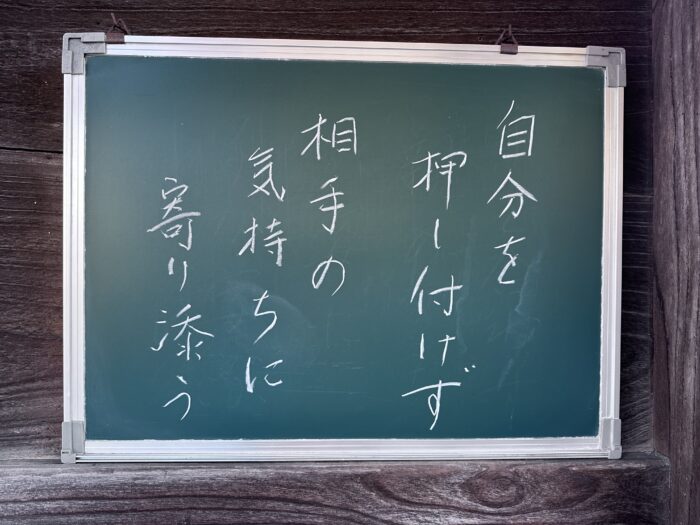 自分を
押し付けず
相手の
気持ちに
寄り添う